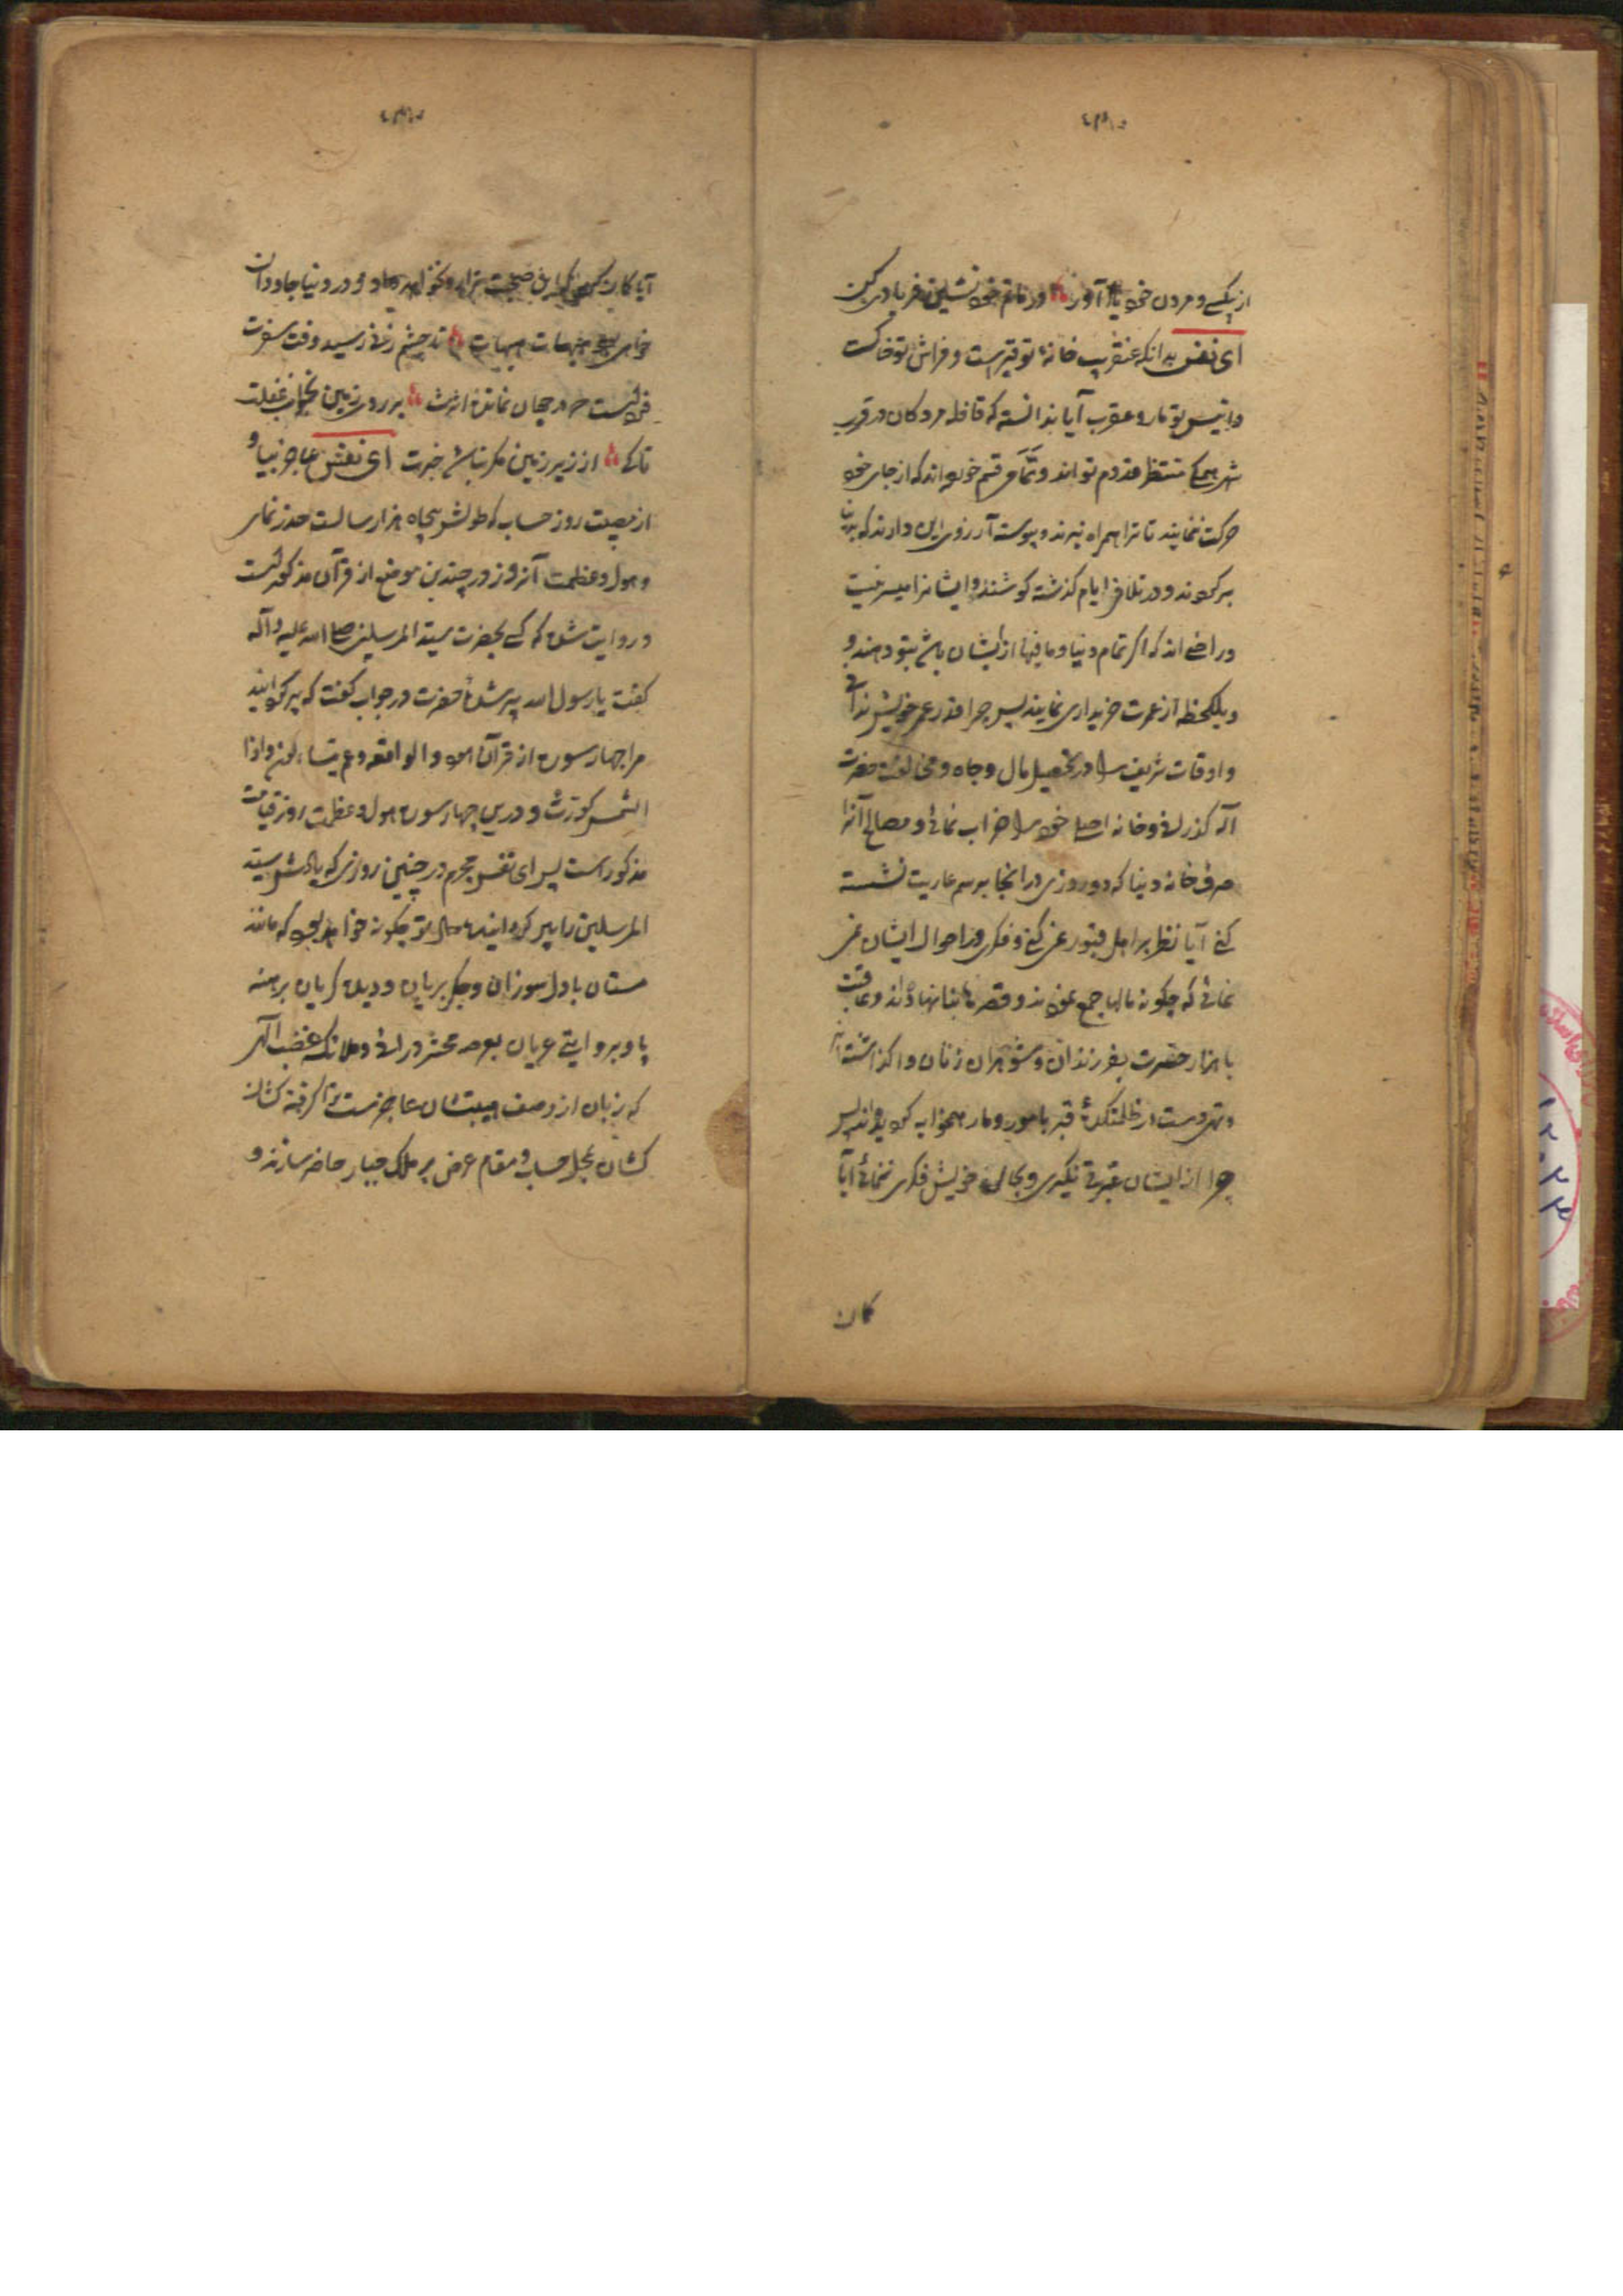 از بیکسی و مردن خود یاد آور در ماتم خود نشین و فریادی کن
ای نفس بدانکه عنقریب خانهٔ تو قبرست و فراش تو خاکست
و انیس تو مار و عقرب آیا ندانسته که قافله مردکان در قرب
شهر همکی منتظر قدوم تو اند و تمامی قسم خورده اند که از جای خود
حرکت ننمایند تا ترا همراه نبرند و پیوسته آرزوی این دارند که بدنیا
برکردند و در تلافی ایام کذشته کوشند و ایشانرا میسر نیست
و راضی اند که اکر تمام دنیا و ما فیها از ایشان باشد بتو دهند و
و یکلحظه از عمرت خریداری نمایند پس چرا قدر عمر خویش ندانی
و اوقات شریف را در تحصیل مال و جاه و مخالفت حضرت
اله کذرانی و خانه اصلی خود را خراب نمائی و مصالح آنرا
صرف خانه دنیا که دو روزی در انجا برسم عاریت نشسته
کنی آیا نظر بر اهل قبور نمی کنی و فکری در احوال ایشان نمی
نمائی که چکونه مالها جمع نمودند و قصرها بنا نهاده اند و عاقبت
با هزار حسرت بفرزندان و شوهران زنان واکذاشته اند
و تهی دست در ظلمتکدهٔ قبر با مور و مار همخوابه کردیده اند پس
چرا از ایشان عبرتی نکیری و بحال خویش فکری ننمائی آیا
کان
آیا کان
خواهی بود هیهات هیهات زد چشم زخم رسید وقت سفرت
خوابست در جهان نمانده اثرت بر روی زمین بخواب غفلت
تا کی از زیر زمین مکر نباشد خبرت ای نفس عاجز بیا و
از مصیبت روز حساب که طولش پنجاه هزار سالست حذر نمای
و هول و عظمت آنروز در چندین موضع از قرآن مذکورست
و روایت شده که کسی بحضرت سید المرسلین صلی الله علیه و آله
کفت یا رسول الله پیر شدی حضرت در جواب کفت که پیر کردانید
مرا چهار سوره از قرآن هود و الواقعه و عم یتساءلون و اذا
الشمس کورت و درین چهار سوره هول و عظمت روز قیامت
مذکور است پس ای نفس مجرم در چنین روزی که یادش سید
المرسلین را پیر کرداند حال تو چکونه خواهد بود که مانند
مستان با دل سوزان و جکر بریان و دیده کریان برهنه
پا و بروایتی عریان بعرصه محشر در ائی و ملائکه غضب الهی
که زبان از وصف هیبتشان عاجزست ترا کرفته کشان
کشان بمحل حساب و مقام عرض بر ملک جبار حاضر سازند و